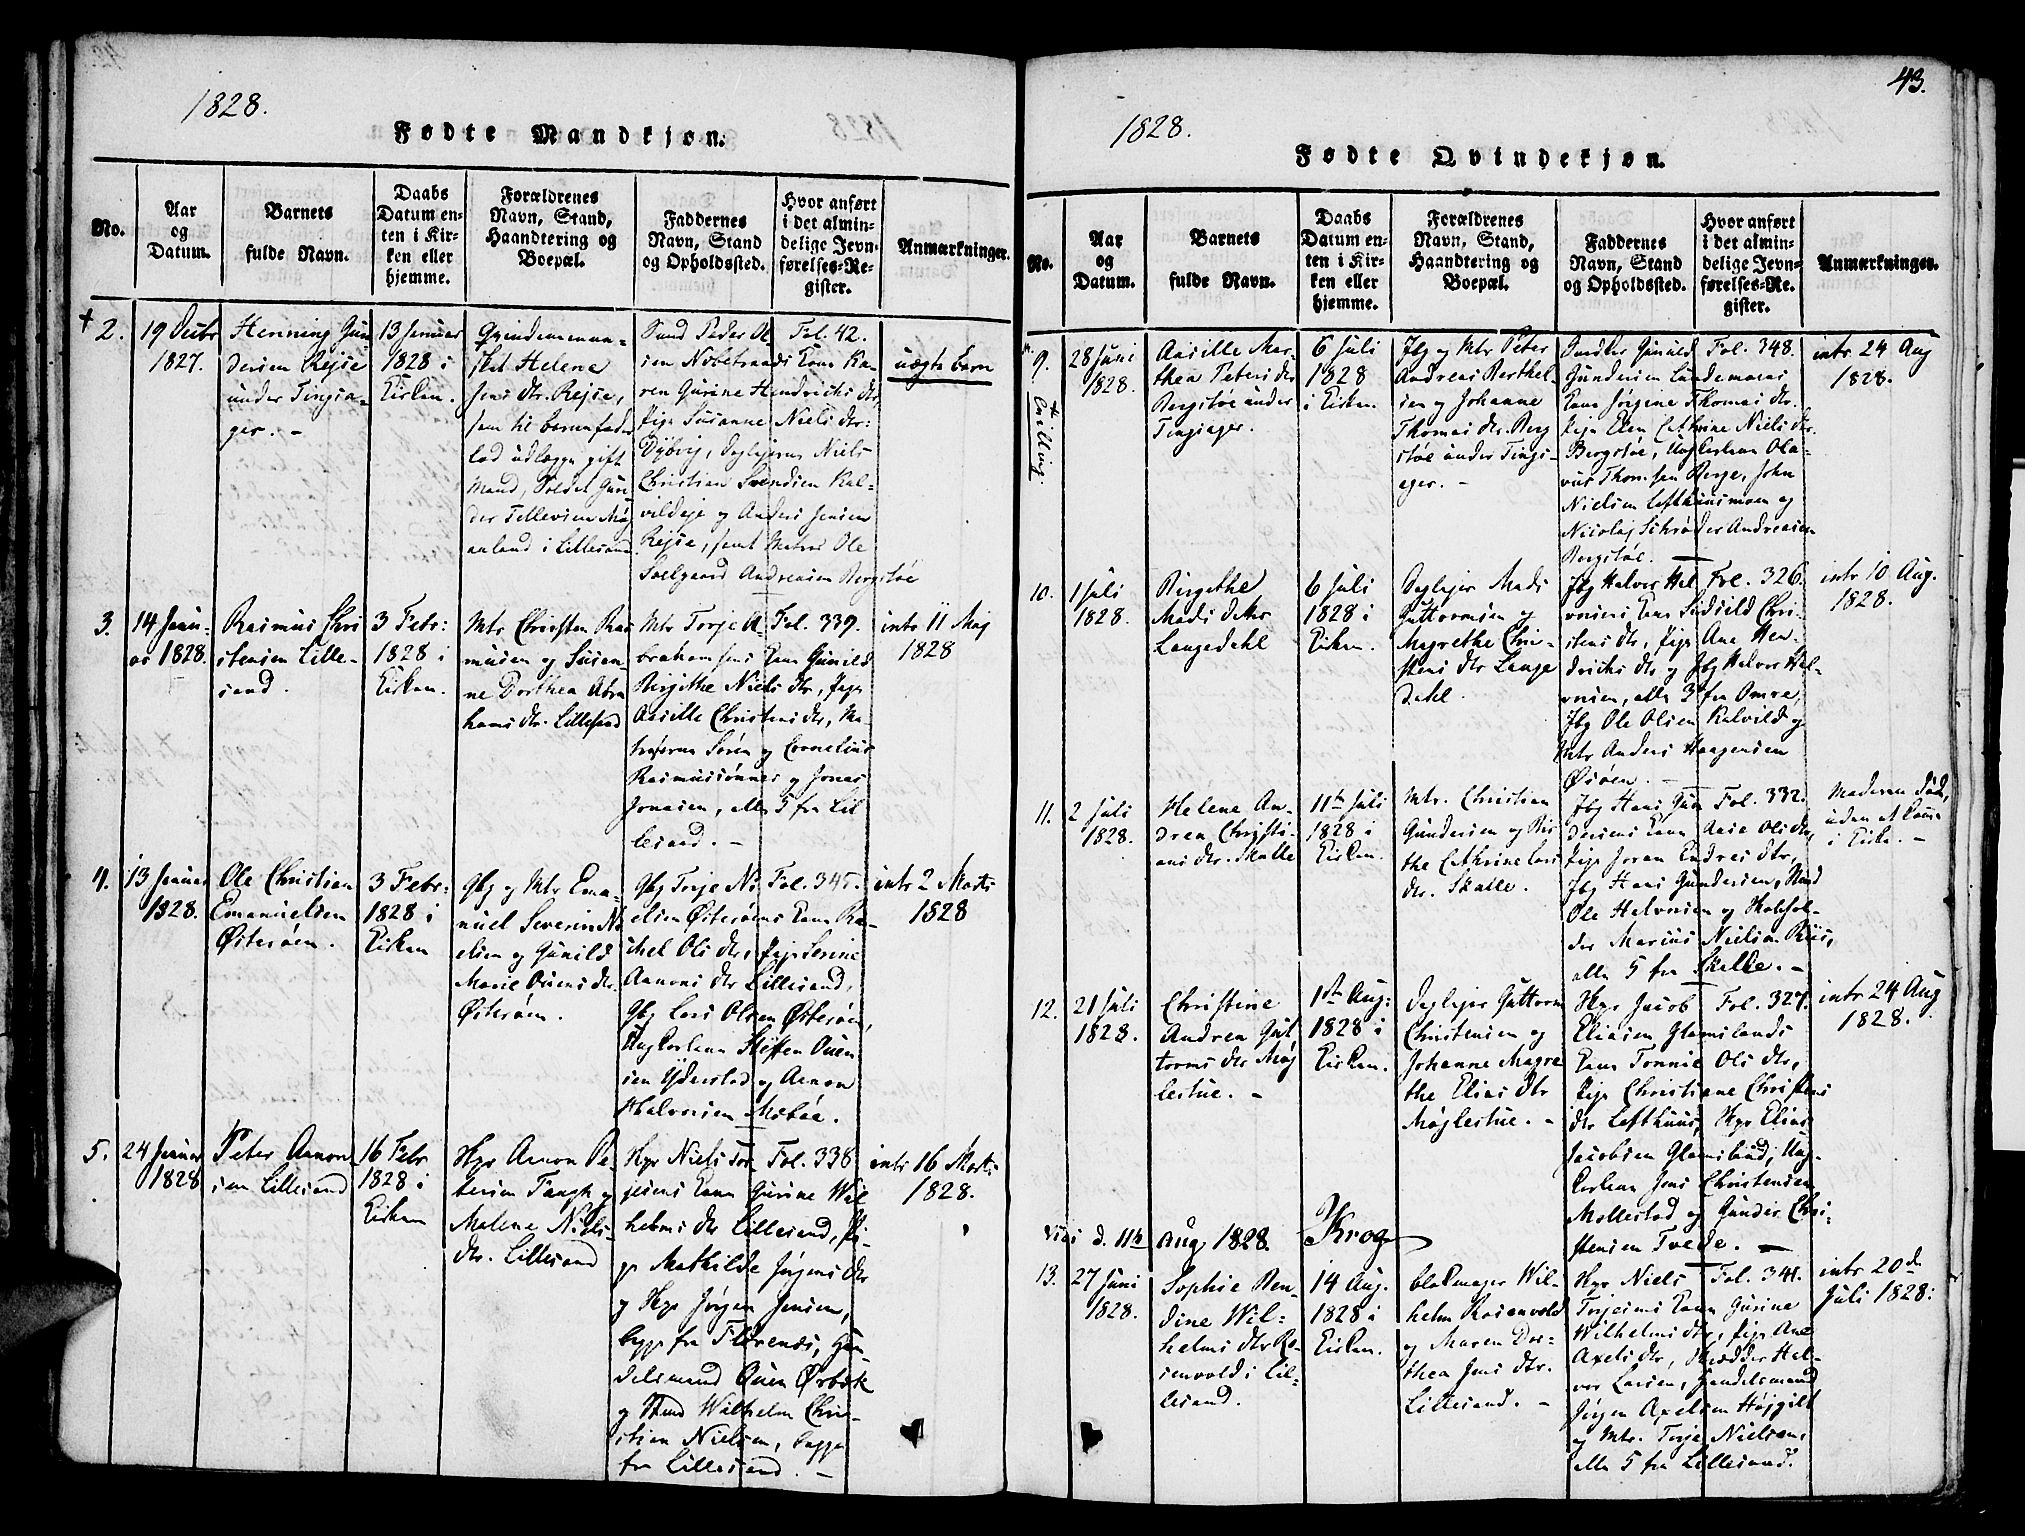 1828.
Fødte Mandkjøn.
No.
Aar
og
Datum.
Barnets
fulde Navn.
Daabs
Datum en-
ten i Kir-
ken eller
hjemme.
Forældrenes
Navn, Stand,
Haandtering og
Boepæl.
Faddernes
Navn, Stand
og Opholdssted.
Hvor anført
i det almin-
delige Jevn-
førelses-Re-
gister.
Anmærkninger.
2.
19 Decbr
1827.
Henning Gun
dersen Rejse
under Tingsa-
ger. -
13 Januar
1828 i
Kirken.
Qvindemenne-
sket Helene
Jens dtr. Rejse,
som til barnefader
lod udlægge gift
Mand, Soldat Gun
der Tellevsen Møg
aaland i Lillesand
Svend Peder Ol
sen Nøbetraads Kone Ka-
ren Gurine Hendrichs dtr,
Pige Susanne Niels dtr:
Dybvig, Deglejerne Niels
Christian Svendsen Kal-
vildeje og Anders Jensen
Rejse, samt Matros Ole
Soelgaard Andreasen Bergstøe
Fol. 42.
uægte barn
3.
14 Janu-
ar 1828.
Rasmus Chri
stensen Lille-
sand.
3 Febr:
1828 i
Kirken.
Mtr Christen Ras
musen og Susan
ne Dorthea Abra
hams dtr. Lillesand
Mtr Torje A-
brahamsens Kone Gunild
Birgithe Niels dtr, Pige
Aasille Christens dtr, Ma-
troserne Søren og Cornelius
Rasmussønner og Jonas
Jonasen, alle 5 fra Lil
lesand. -
Fol. 339.
intr 11 Maj
1828
4.
13 Januar
1828.
Ole Christian
Emanuelsen
Østerøen.
3 Febr:
1828 i
Kirken
Gbg og Mtr Ema-
nuel Severin Ni
elsen og Gunild
Marie Ouens dtr.
Østerøen.
Gbg Torje Ni
elsen Østerøens Kone Ra-
chel Ols dtr, Pige Serine
Aanons dtr Lillesand,
Gbg Lars Olsen Østerøen,
Ungkarlene Steffen Ouen
sen Yderstad og Aanon
Halvorsen Mebøe.
Fol. 345.
intr 2 Marts
1828
5.
24 Januar
1828
Peter Aanon-
sen Lillesand
16 Febr
1828 i
Kirken
Hgr Aanon Pe-
tersen Fangh og
Malene Niels-
dtr. Lillesand
Hgr Niels Tor-
jesens Kone Gurine Wil
helms dtr Lillesand, Pi-
ge Mathilde Jørgens dtr
og Hgr Jørgen Jensen,
begge fra Florenæs, Han-
delsmand Ouen Ørbæk
og Stud Wilhelm Chri-
stian Nielsen, begge
fra Lillesand. -
Fol. 338
intr 16 Marts
1828.
43.
1828.
Fødte Qvindekjøn.
No.
Aar
og
Datum.
Barnets
fulde Navn.
Daabs
Datum en-
ten i Kir-
ken eller
hjemme.
Forældrenes
Navn, Stand,
Haandtering og
Boepæl.
Faddernes
Navn, Stand
og Opholdssted.
Hvor anført
i det almin-
delige Jevn-
førelses-Re-
gister.
Anmærkninger.
9.
Tvilling
28 Juni
1828.
Aasille Mar-
thea Peters dtr
Bergstøe under
Tingsager.
6 Juli
1828
i Kirken.
Jbg og Mtr Peter
Andreas Berthel-
sen og Johanne
Thomas dtr. Berg
støe under Tings-
ager. -
Gunild
Gundersen Landemoens
Kone Jørgene Thomas dtr.
Pige Elen Cathrine Niels dtr.
Bergstøe, Ungkarlene Ola-
vus Thomsen Berge, John
Nielsen Lofthuusmoen og
Nicolay Schrøder Andreasen
Bergstøe. -
Fol. 348.
intr 24 Aug
1828.
10.
1 Juli
1828.
Birgethe
Mads datr
Langedahl
6 Juli
1828 i
Kirken.
Deglejer Mads
Guttormsen og
Magrethe Chri-
stens dtr Lange
dahl.
Jbg Halvor Hal
vorsens Kone Sidsild Chri-
stens dtr, Pige Ane Hen-
drichs dtr og Jbg Halvor Hal-
vorsen, alle 3 fra Omre,
Jbg Ole Olsen Kalvild og
Mtr Anders Haagensen
Øsøen. -
Fol. 326.
intr 10 Aug.
1828.
11.
2 Juli
1828.
Helene An-
drea Christi-
ans dtr. Skalle
11te Juli
1828 i
Kirken.
Mtr. Christian
Gundersen og Bir
the Cathrine Lars
dtr. Skalle.
Jbg Hans Gun
dersens Kone Aase Ols dtr,
Pige Joran Endres dtr,
Jbg Hans Gundersen,
Ole Halvorsen og Skolehol-
der Marius Nielsen Riis,
alle 5 fra Skalle. -
Fol. 332.
Moderen død,
uden at komme
i Kirke. -
12.
21 Juli
1828.
Christine
Andrea Gut
torms dtr Møg
lestue. -
1ste Aug:
1828 i
Kirken.
Deglejer Guttorm
Christensen og
Johanne Magre
the Elias dtr
Møglestue. -
Hgr Jacob
Eliasen Glamslands
Kone Tonnie Ols dtr,
Pige Christiane Christens
dtr Lofthuus, Hgr Elias
Jacobsen Glamsland, Ung-
karlene Jens Christensen
Mollestad og Gunder Chri-
stensen Tvede. -
Fol. 327.
intr 24 Aug
1828.
Vidi d. 11te Aug 1828. Krog
13.
27 Juni
1828.
Sophie Ben-
dine Wil-
helms dtr Ro-
senvold i Lil-
lesand.
14 Aug.
1828 i
Kirken.
blokmager Wil-
helm Rosenvold
og Maren Dor-
thea Jens dtr.
Lillesand. -
Hgr Niels
Torjesens Kone Gurine
Wilhelms dtr, Pige Ane
Axels dtr, Skrædder Hal-
vor Larsen, Handelsmand
Jørgen Axelsen Højgilt
og Mtr. Torje Nielsen,
alle 5 fra Lillesand.
Fol. 341.
intr 20de
Juli 1828.